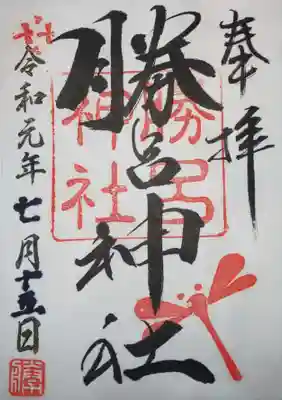 奉拝
勝呂神社
勝呂神社
令和元年七月十五日